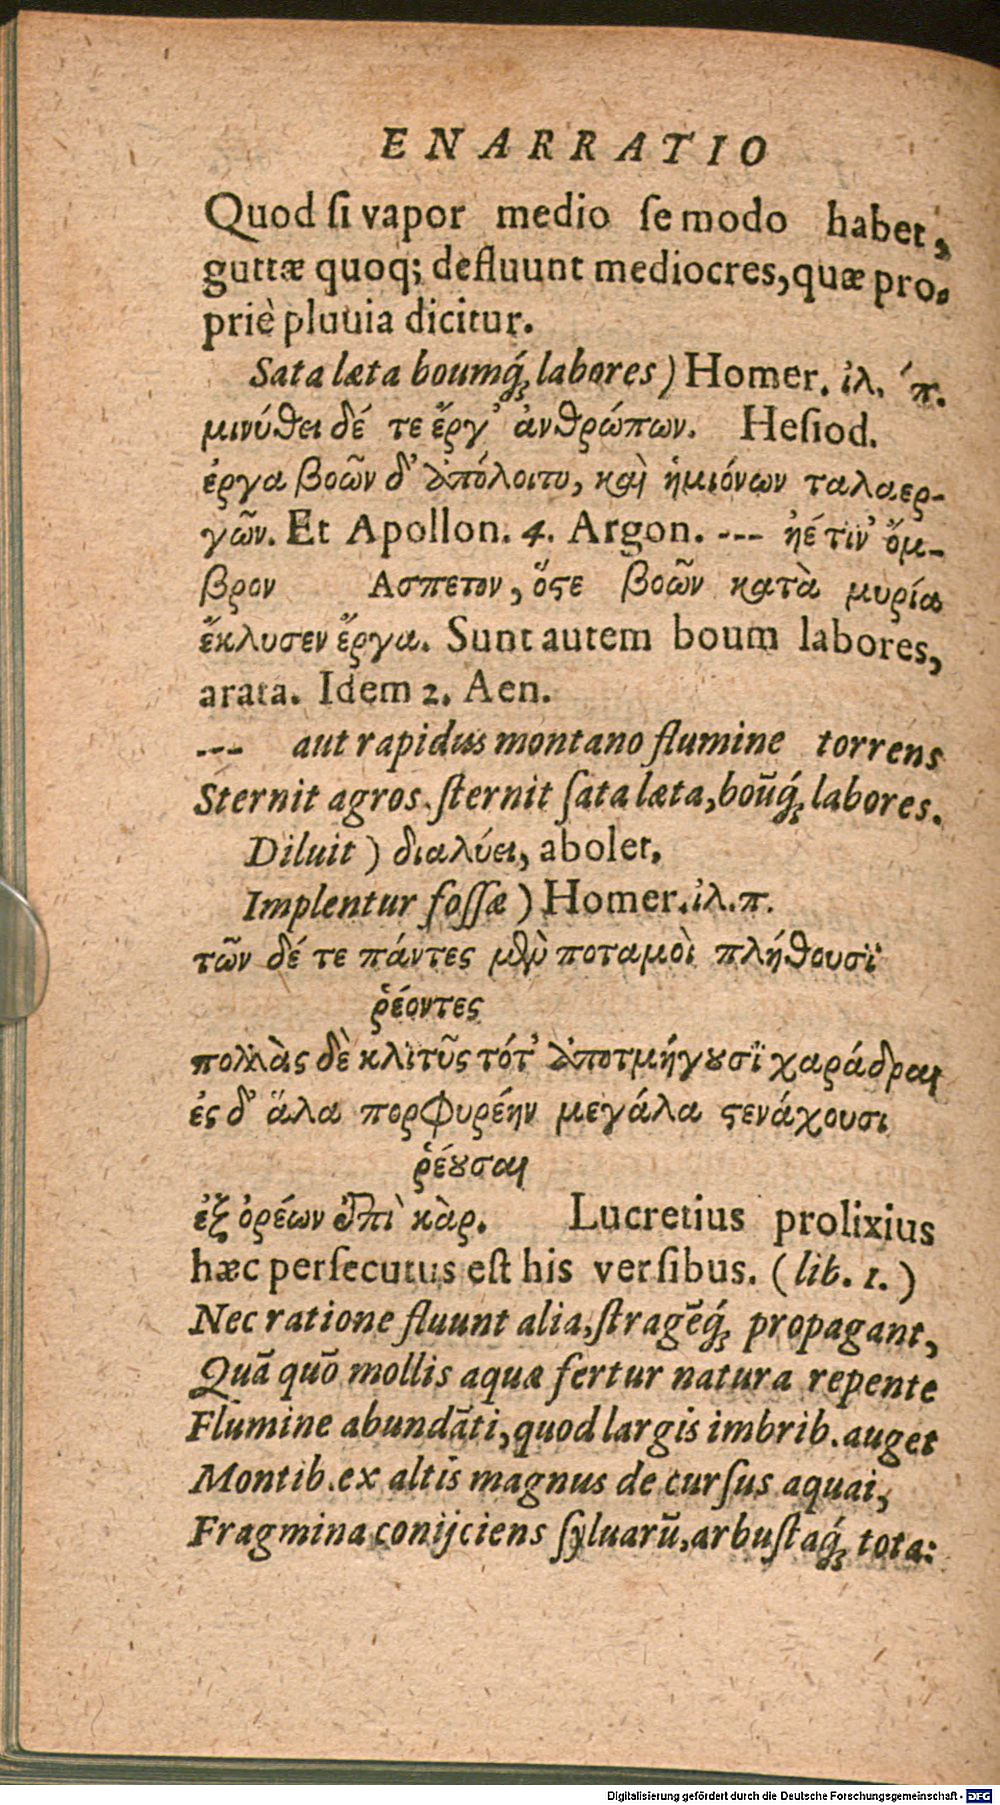 ENARRATIO
Quod ſi vapor medio ſe modo habet,
guttæ quoq; defluunt mediocres, quæ pro-
priè pluuia dicitur.
Sata læta boumq́ꝫ labores) Homer. ἰλ. π.
μινύθει δέ τε ἔργ᾽ ἀνθρώπων. Heſiod.
ἐργα βοῶν δ᾽ ἀπόλοιτο, καὶ ἡμιόνων ταλαερ-
γῶν. Et Apollon. 4. Argon. --- ἠέ τιν᾽ ὄμ-
βρον Ασπετον, ὅςε βοῶν κατὰ μυρία
ἔκλυσεν ἔργα. Sunt autem boum labores,
arata. Idem 2. Aen.
--- aut rapidus montano flumine torrens
Sternit agros. ſternit ſata læta, boūq́ꝫ labores.
Diluit) διαλύει, abolet.
Implentur foſſæ) Homer. ἰλ. π.
τῶν δέ τε πάντες μὲν ποταμοὶ πλήθουσϊ
ῥέοντες
πολλὰς δὲ κλιτῦς τότ᾽ ἀποτμήγουσϊ χαράδραι
ἐς δ᾽ ἅλα πορφυρέην μεγάλα ςενάχουσι
ῥέουσαι
ἐξ ὀρέων ἐπὶ κὰρ. Lucretius prolixius
hæc perſecutus eſt his verſibus. (lib. 1.)
Nec ratione fluunt alia, ſtragēq́ꝫ propagant,
Quā quō mollis aquæ fertur natura repente
Flumine abundāti, quod largis imbrib. auget
Montib. ex altis magnus de curſus aquai,
Fragmina conijciens ſyluarū, arbuſtaq́ꝫ tota:
Digitalisierung gefördert durch die Deutsche Forschungsgemeinschaft - DFG